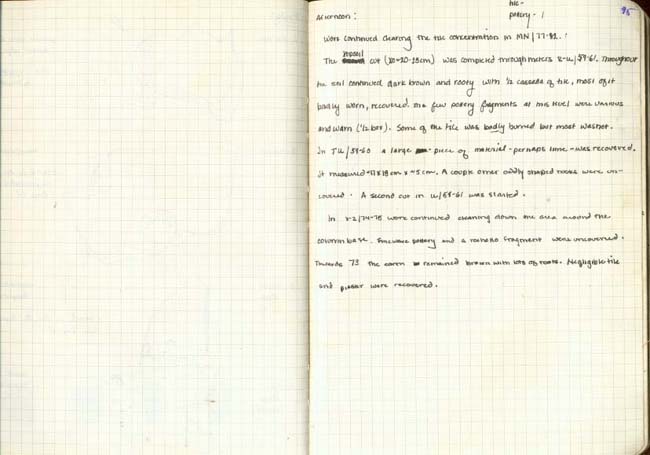 tile -
pottery - 1
95
Afternoon:
Work continued clearing the tile concentration in MN/77-82.
topsoil
The cut (xo=20-25cm) was completed through meters R-U/59-61. Throughout
the soil continued dark brown and rooty with 1/2 cassela of tile, most of it
badly worn, recovered. The few pottery fragments at this level were various
and worn (1/2 box). Some of the tile was badly burned but most was not.
In TU/59-60 a large piece of material - perhaps lime - was recovered.
It measured 18cm x ~5cm. A couple other oddly shaped rocks were un-
covered. A second cut in U/59-61 was started.
In /74-75 work continued cleaning down the area around the
column base. Fineware pottery and a fragment were uncovered.
Towards 73 the earth remained brown with lots of roots. Negligible tile
and plaster were recovered.